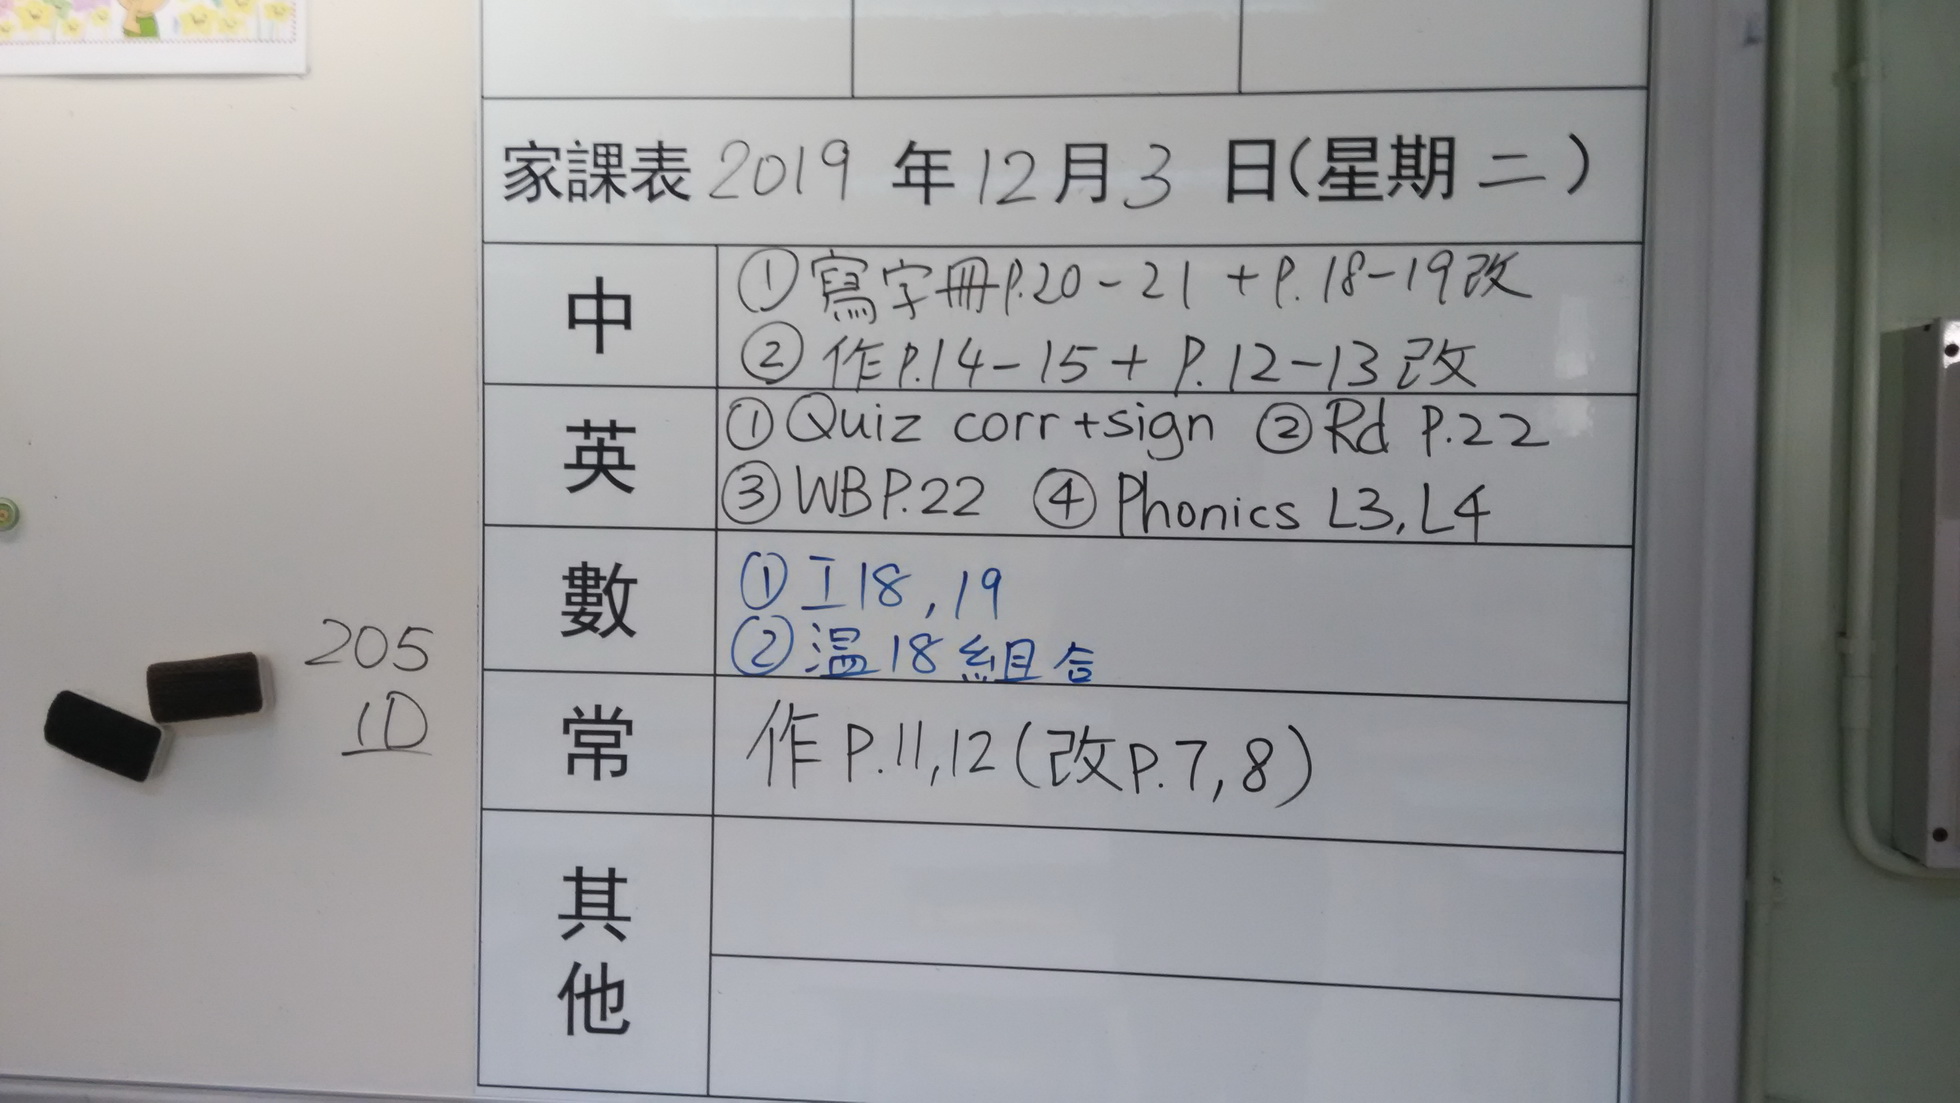 家課表 2019 年 12 月 3 日(星期 二 )
中
① 寫字冊P.20-21 + P.18-19改
② 作P.14-15 + P.12-13改
英
① Quiz corr+sign ② Rd P.22
③ WB P.22 ④ Phonics L3, L4
數
① 工18, 19
② 温18組合
常
作 P.11,12 (改P.7,8)
其他
205
1D